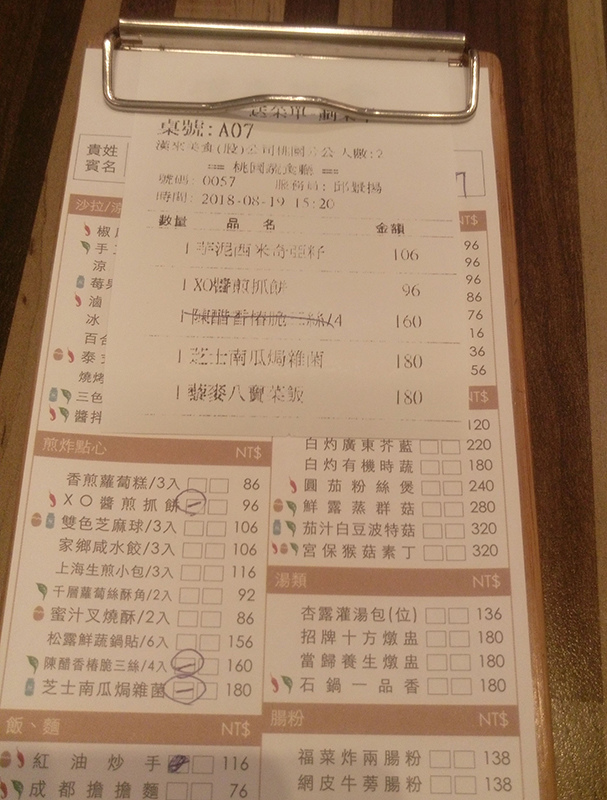 桌號: A07
漢來美食(股)公司桃園分公 人數:2
== 桃園蔬食廳 ==
號碼: 0057 服務員: 邱
時間: 2018-08-19 15:20
數量 品名 金額
1 芋泥西米奇亞籽 106
1 XO醬煎抓餅 96
1 陳醋香椿脆三絲/4 160
1 芝士南瓜焗雜菌 180
1 藜麥八寶菜飯 180
貴姓
賓名
沙拉/涼
椒
手
涼
莓果
滷
冰
百合
泰
燒烤
三色
醬拌
NT$
96
96
96
86
76
16
36
56
NT$
120
煎炸點心 NT$
香煎蘿蔔糕/3入 86
XO醬煎抓餅 96
雙色芝麻球/3入 106
家鄉咸水餃/3入 106
上海生煎小包/3入 116
千層蘿蔔絲酥角/2入 92
蜜汁叉燒酥/2入 86
松露鮮蔬鍋貼/6入 156
陳醋香椿脆三絲/4入 160
芝士南瓜焗雜菌 180
飯、麵 NT$
紅油炒手 116
成都擔擔麵 76
白灼廣東芥藍 220
白灼有機時蔬 180
圓茄粉絲煲 240
鮮露蒸群菇 280
茄汁白豆波特菇 320
宮保猴菇素丁 320
湯類 NT$
杏露灌湯包(位) 136
招牌十方燉盅 180
當歸養生燉盅 180
石鍋一品香 180
腸粉 NT$
福菜炸兩腸粉 138
網皮牛蒡腸粉 138